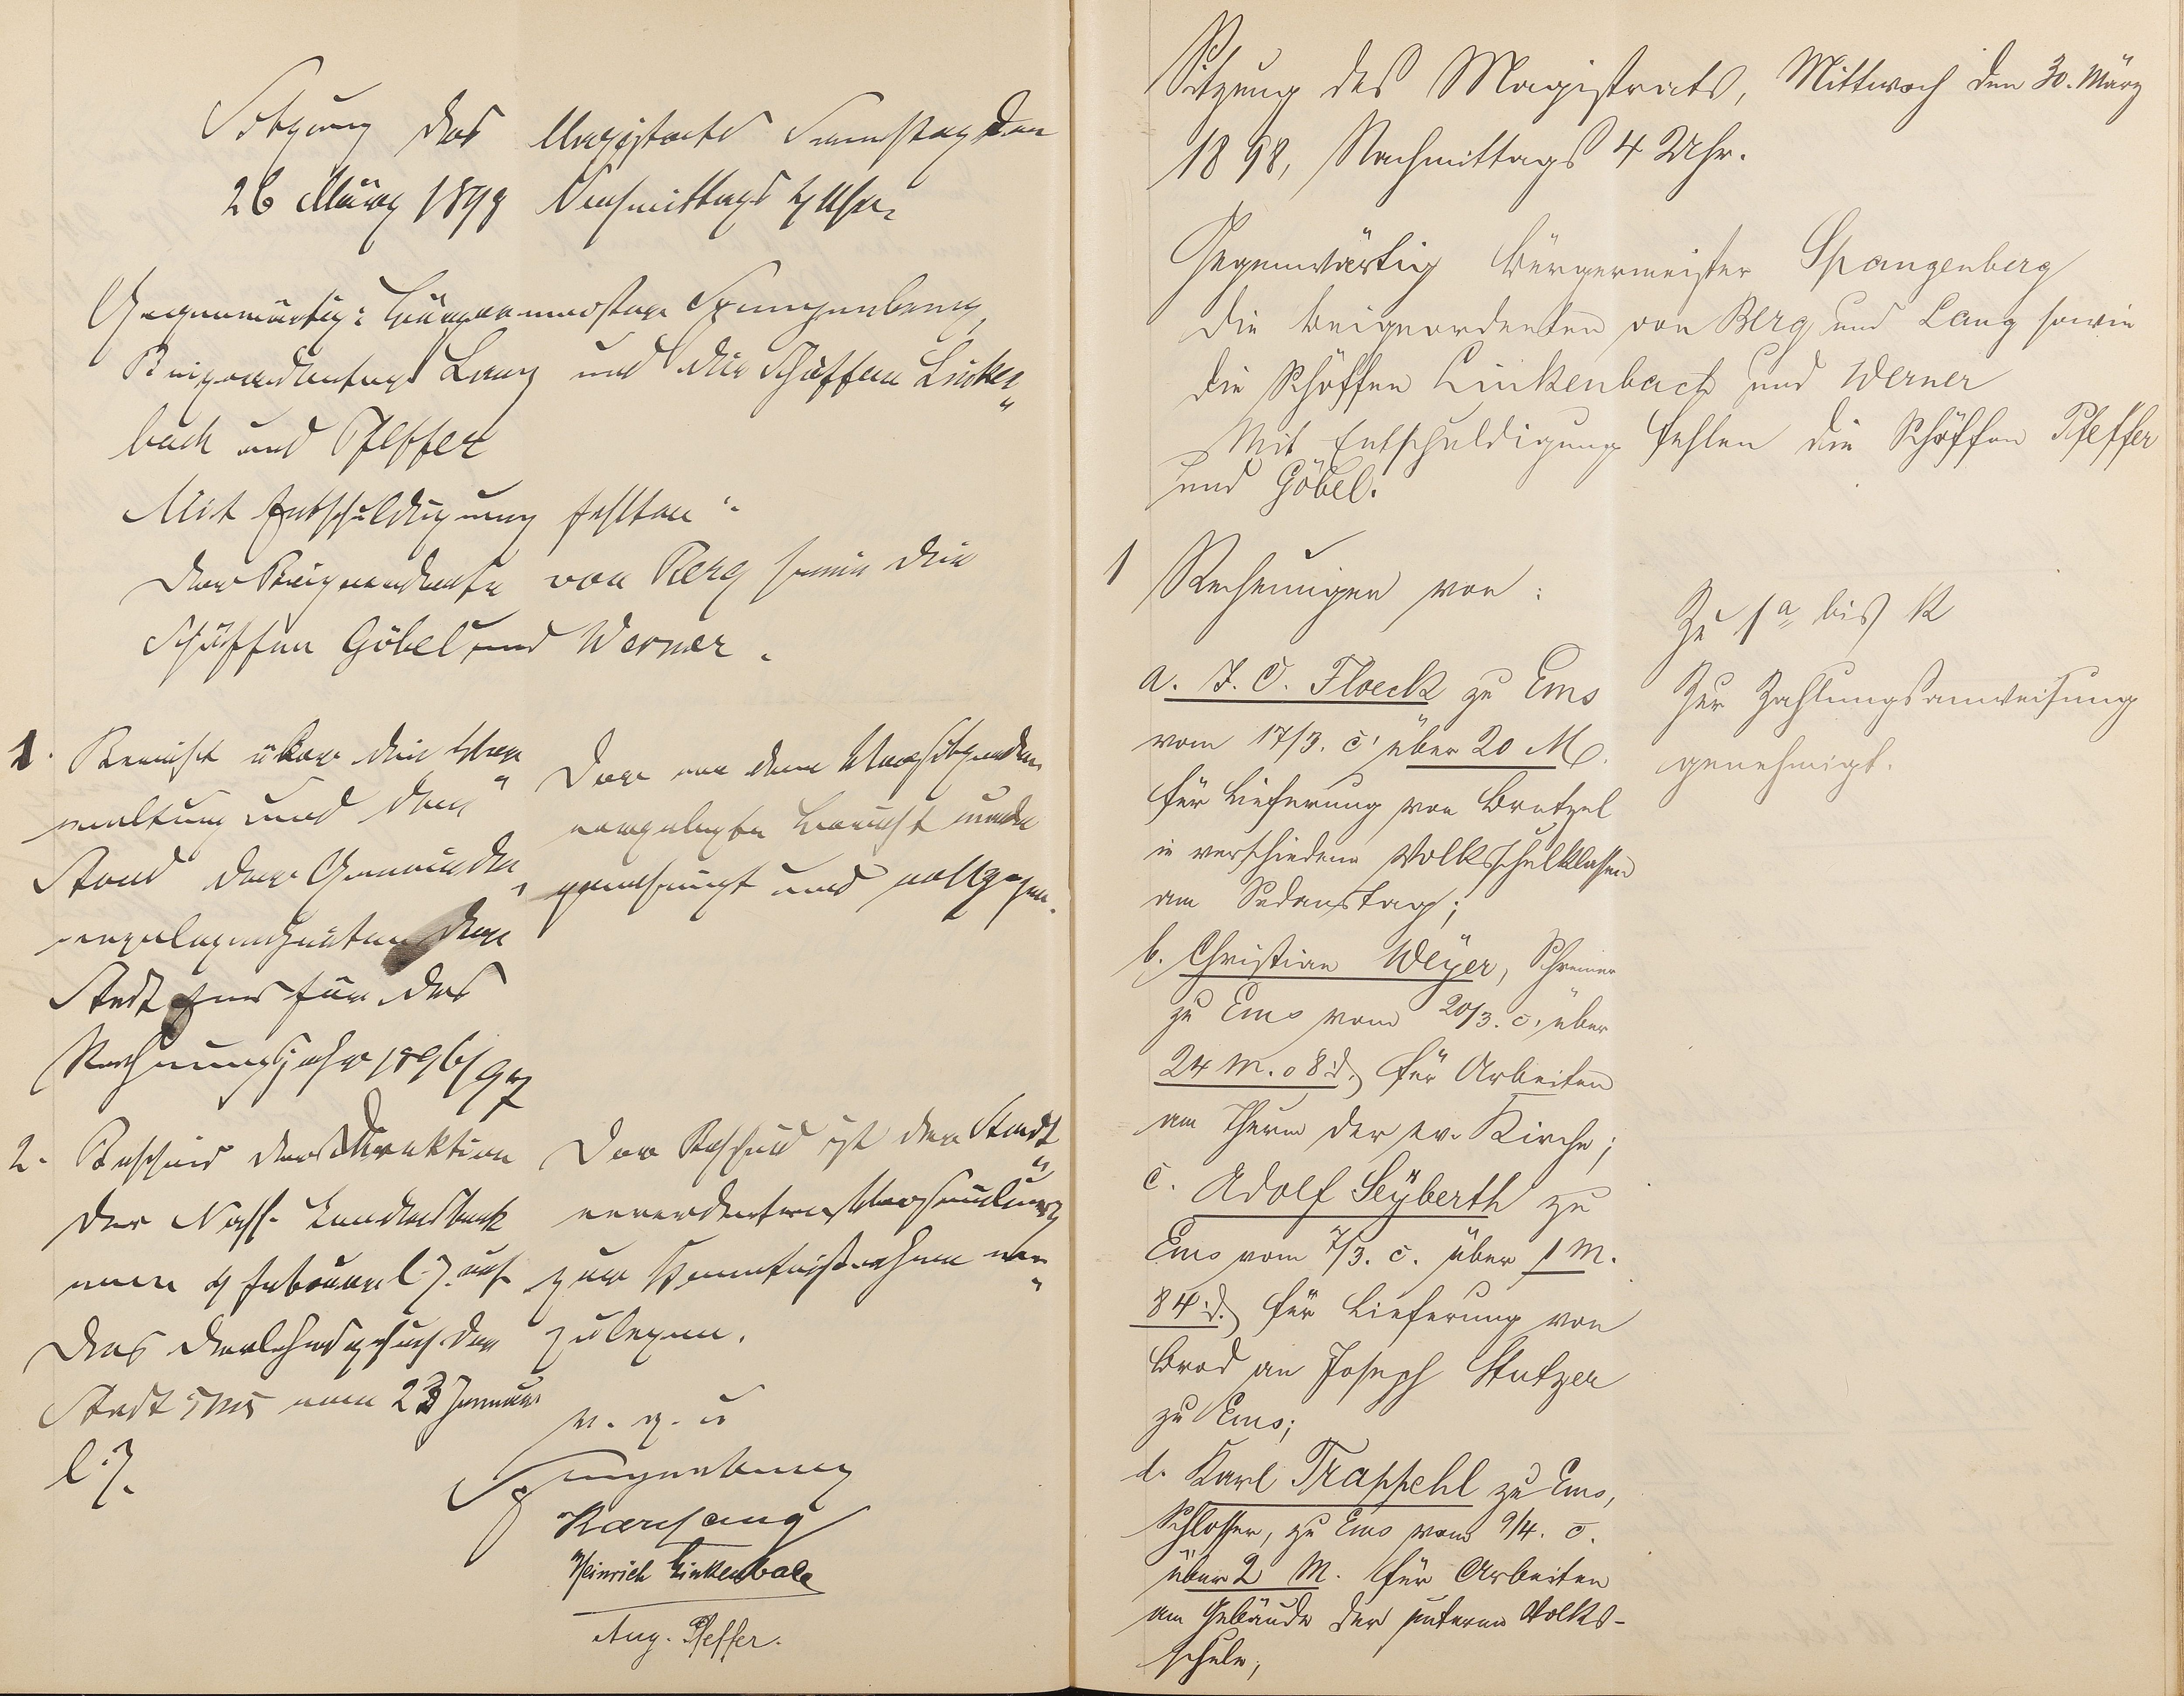 Sitzung des Magistrats Samstag den
26 März 1898 Nachmittags 4 Uhr.
Gegenwärtig: Bürgermeister Spangenberg,
Beigeordneter Lang und die Schöffen Linken„
bach und Pfeffer
Mit Entschuldigung fehlten:
der Beigeordnete von Berg sowie die
Schöffen Göbel und Werner.
1. Bericht über die Ver„
waltung und den
Stand der Gemeinde„
angelegenheiten der
Stadt Ems für das
Rechnungsjahr 1896/97
Der von dem Vorsitzenden
vorgelegte Bericht wurde
genehmigt und vollzogen.
2. Bescheid der Direktion
der Nass. Landesbank
vom 4 Februar l. J. auf
das Darlehnsgesuch der
Stadt Ems vom 23 Januar
l. J.
Der Bescheid ist der Stadt„
verordneten Versammlung
zur Kenntnißnahme vor„
zulegen.
v. g. u
Spangenberg
Karl Lang
Heinrich Linkenbach
Aug. Pfeffer.
Sitzung des Magistrats, Mittwoch den 30. März
1898, Nachmittags 4 Uhr.
Gegenwärtig Bürgermeister Spangenberg
die Beigeordneten von Berg und Lang sowie
die Schöffen Linkenbach und Werner
Mit Entschuldigung fehlen die Schöffen Pfeffer
und Göbel.
1 Rechnungen von:
a. J. O. Floeck zu Ems
vom 17/3. c. über 20 M.
für Lieferung von Bretzel
in verschiedene Volksschulklassen
am Sedanstag;
b. Christian Weyer, Schreiner
zu Ems vom 20/3. c. über
24 M. 08 d. für Arbeiten
am Thurm der ev. Kirche;
c. Adolf Seyberth zu
Ems vom 7/3. c. über 1 M.
84 d. für Lieferung von
Brod an Joseph Stutzer
zu Ems;
d. Karl Trappehl zu Ems,
Schlosser, zu Ems vom 9/4. c.
über 2 M. für Arbeiten
am Gebäude der unteren Volks-
schule;
Zu 1a bis k
Zur Zahlungsanweisung
genehmigt.